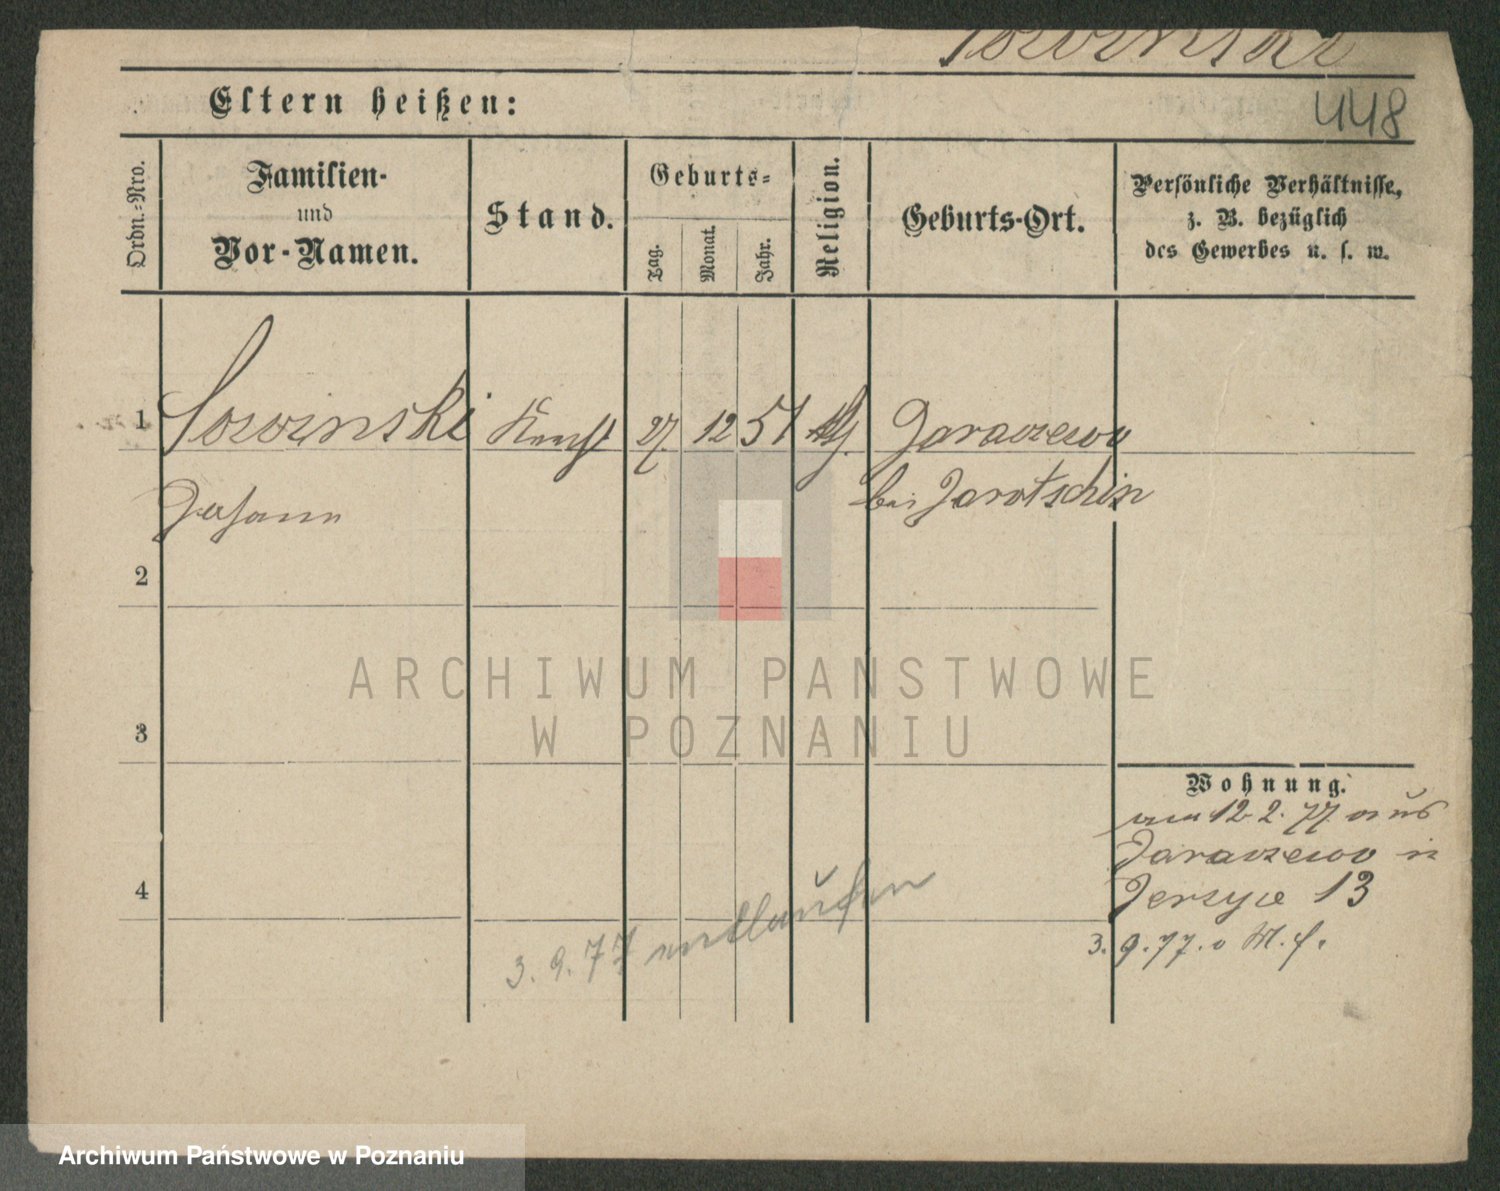 Sowinski
448
Eltern heißen:
Ordn.-Nro.
Familien-
und
Vor-Namen.
Stand.
Geburts-
Tag.
Monat.
Jahr.
Religion.
Geburts-Ort.
Persönliche Verhältnisse,
z. B. bezüglich
des Gewerbes u. s. w.
1
Sowinski
27. 12 51
Jaraczewo
Johann
bei Jarotschin
2
3
4
ARCHIWUM PANSTWOWE
W POZNANIU
Wohnung.
am 12 2. 77 aus
Jaraczewo in
Jerzyce 13
3. 9. 77.
3. 9. 77 entlaufen
Archiwum Państwowe w Poznaniu